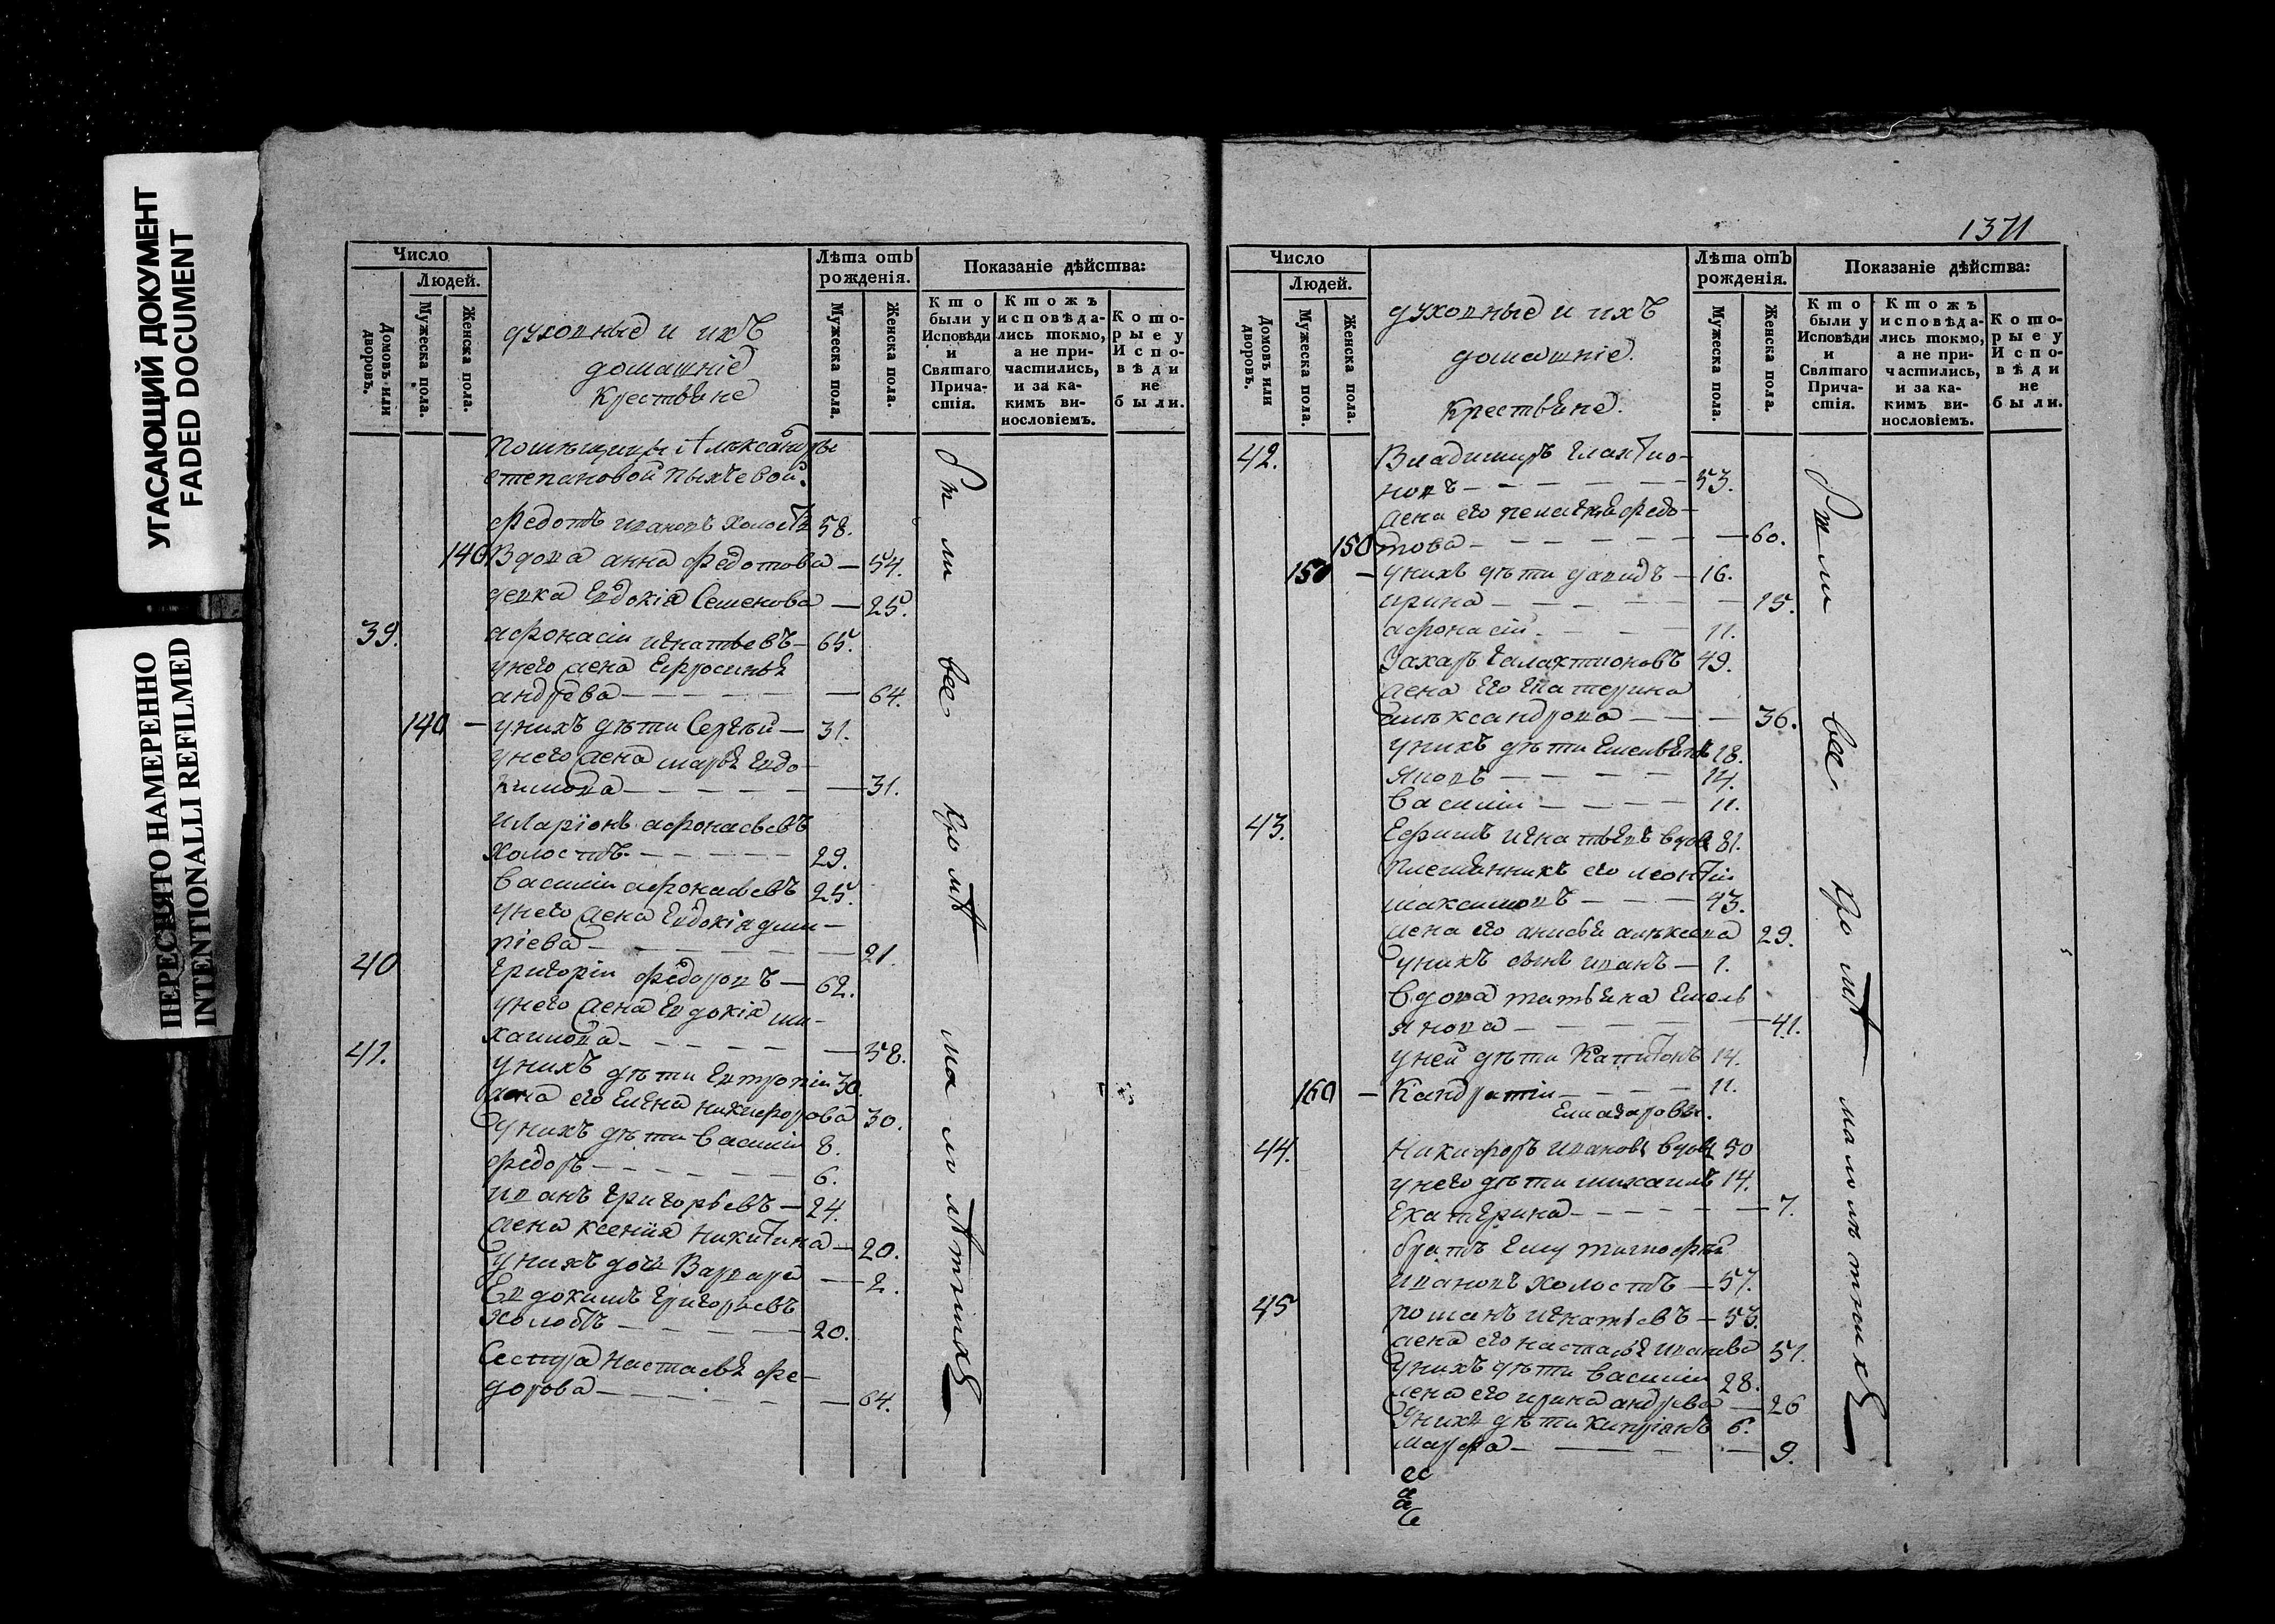 УГАСАЮЩИЙ ДОКУМЕНТ
FADED DOCUMENT
ПЕРЕСНЯТО НАМЕРЕННО
INTENTIONALLI REFILMED
Число
Людей.
Домовъ или дворовъ.
Мужеска пола.
Женска пола.
духовные и ихъ
домашніе
Крестьяне
Лѣта отъ
рожденія.
Мужеска пола.
Женска пола.
Показаніе дѣйства:
Кто были у Исповѣди и Святаго Прича-стія.
Ктожъ исповѣда-лись токмо, а не при-частились, и за ка-кимъ ви-нословіемъ.
Кото-рые у Испо-вѣди не были.
помѣщицы Александры
степановой Пыхчевой.
Федотъ ивановъ холостъ 58.
140 Вдова анна Федотова — 54.
девка Евдокія Семенова — 25.
39. афонасіи игнатьевъ — 65.
унего жена Ефросинья
андреева — 64.
140 — унихъ дѣти Сергѣй — 31.
унего жена марья Евдо-
кимова — 31.
иларіонъ афонасьевъ
холостъ — 29.
василіи афонасьевъ 25.
унего жена Евдокія дми-
ріева — 21.
40 григоріи Федоровъ — 62.
унего жена Евдокія ми-
хаилова — 58.
41. унихъ дѣти Евтропіи 30.
жена его Елена никифорова 30.
унихъ дѣти василіи 8.
Федоръ — 6.
иванъ григорьевъ — 24.
жена ксенія никитина — 20.
унихъ дочь Варвара — 2.
Евдокимъ григорьевъ
холостъ — 20.
Сестра настасья Фе-
дорова — 64.
Были все кромѣ малолѣтныхъ
1371
Число
Людей.
Домовъ или дворовъ.
Мужеска пола.
Женска пола.
духовные и ихъ
домашніе.
Крестьяне.
Лѣта отъ
рожденія.
Мужеска пола.
Женска пола.
Показаніе дѣйства:
Кто были у Исповѣди и Святаго Прича-стія.
Ктожъ исповѣда-лись токмо, а не при-частились, и за ка-кимъ ви-нословіемъ.
Кото-рые у Испо-вѣди не были.
42. Владимиръ глахтио-
новъ — 53.
жена его пелагия федо-
150 това — 60.
150 — унихъ дѣти давидъ — 16.
ирина — 15.
афонасіи — 11.
Захаръ галахтионовъ 49.
жена его Екатерина
алѣксандрова — 36.
унихъ дѣти Емельянъ 18.
Яковъ — 14.
василіи — 11.
43. Ефимъ игнатьевъ вдовъ 81.
племянникъ его леонтіи
максимовъ — 43.
жена его анисья алѣксева 29.
унихъ сынъ иванъ — 1.
вдова татьяна Емель
янова — 41.
уней дѣти Капитонъ 14.
160 — Кандратіи — 11.
Елиазаровы.
44. Никифоръ ивановъ вдовъ 50
унего дѣти михаилъ 14.
Екатерина — 7.
братъ Ему тимофѣй
ивановъ холостъ — 57.
45 романъ игнатьевъ — 53.
жена его настасья иванова 51.
унихъ дѣти василіи 28.
жена его ирина андреева — 26
Унихъ дѣти киприянъ 6.
марфа — 9.
Были все кромѣ малолѣтныхъ